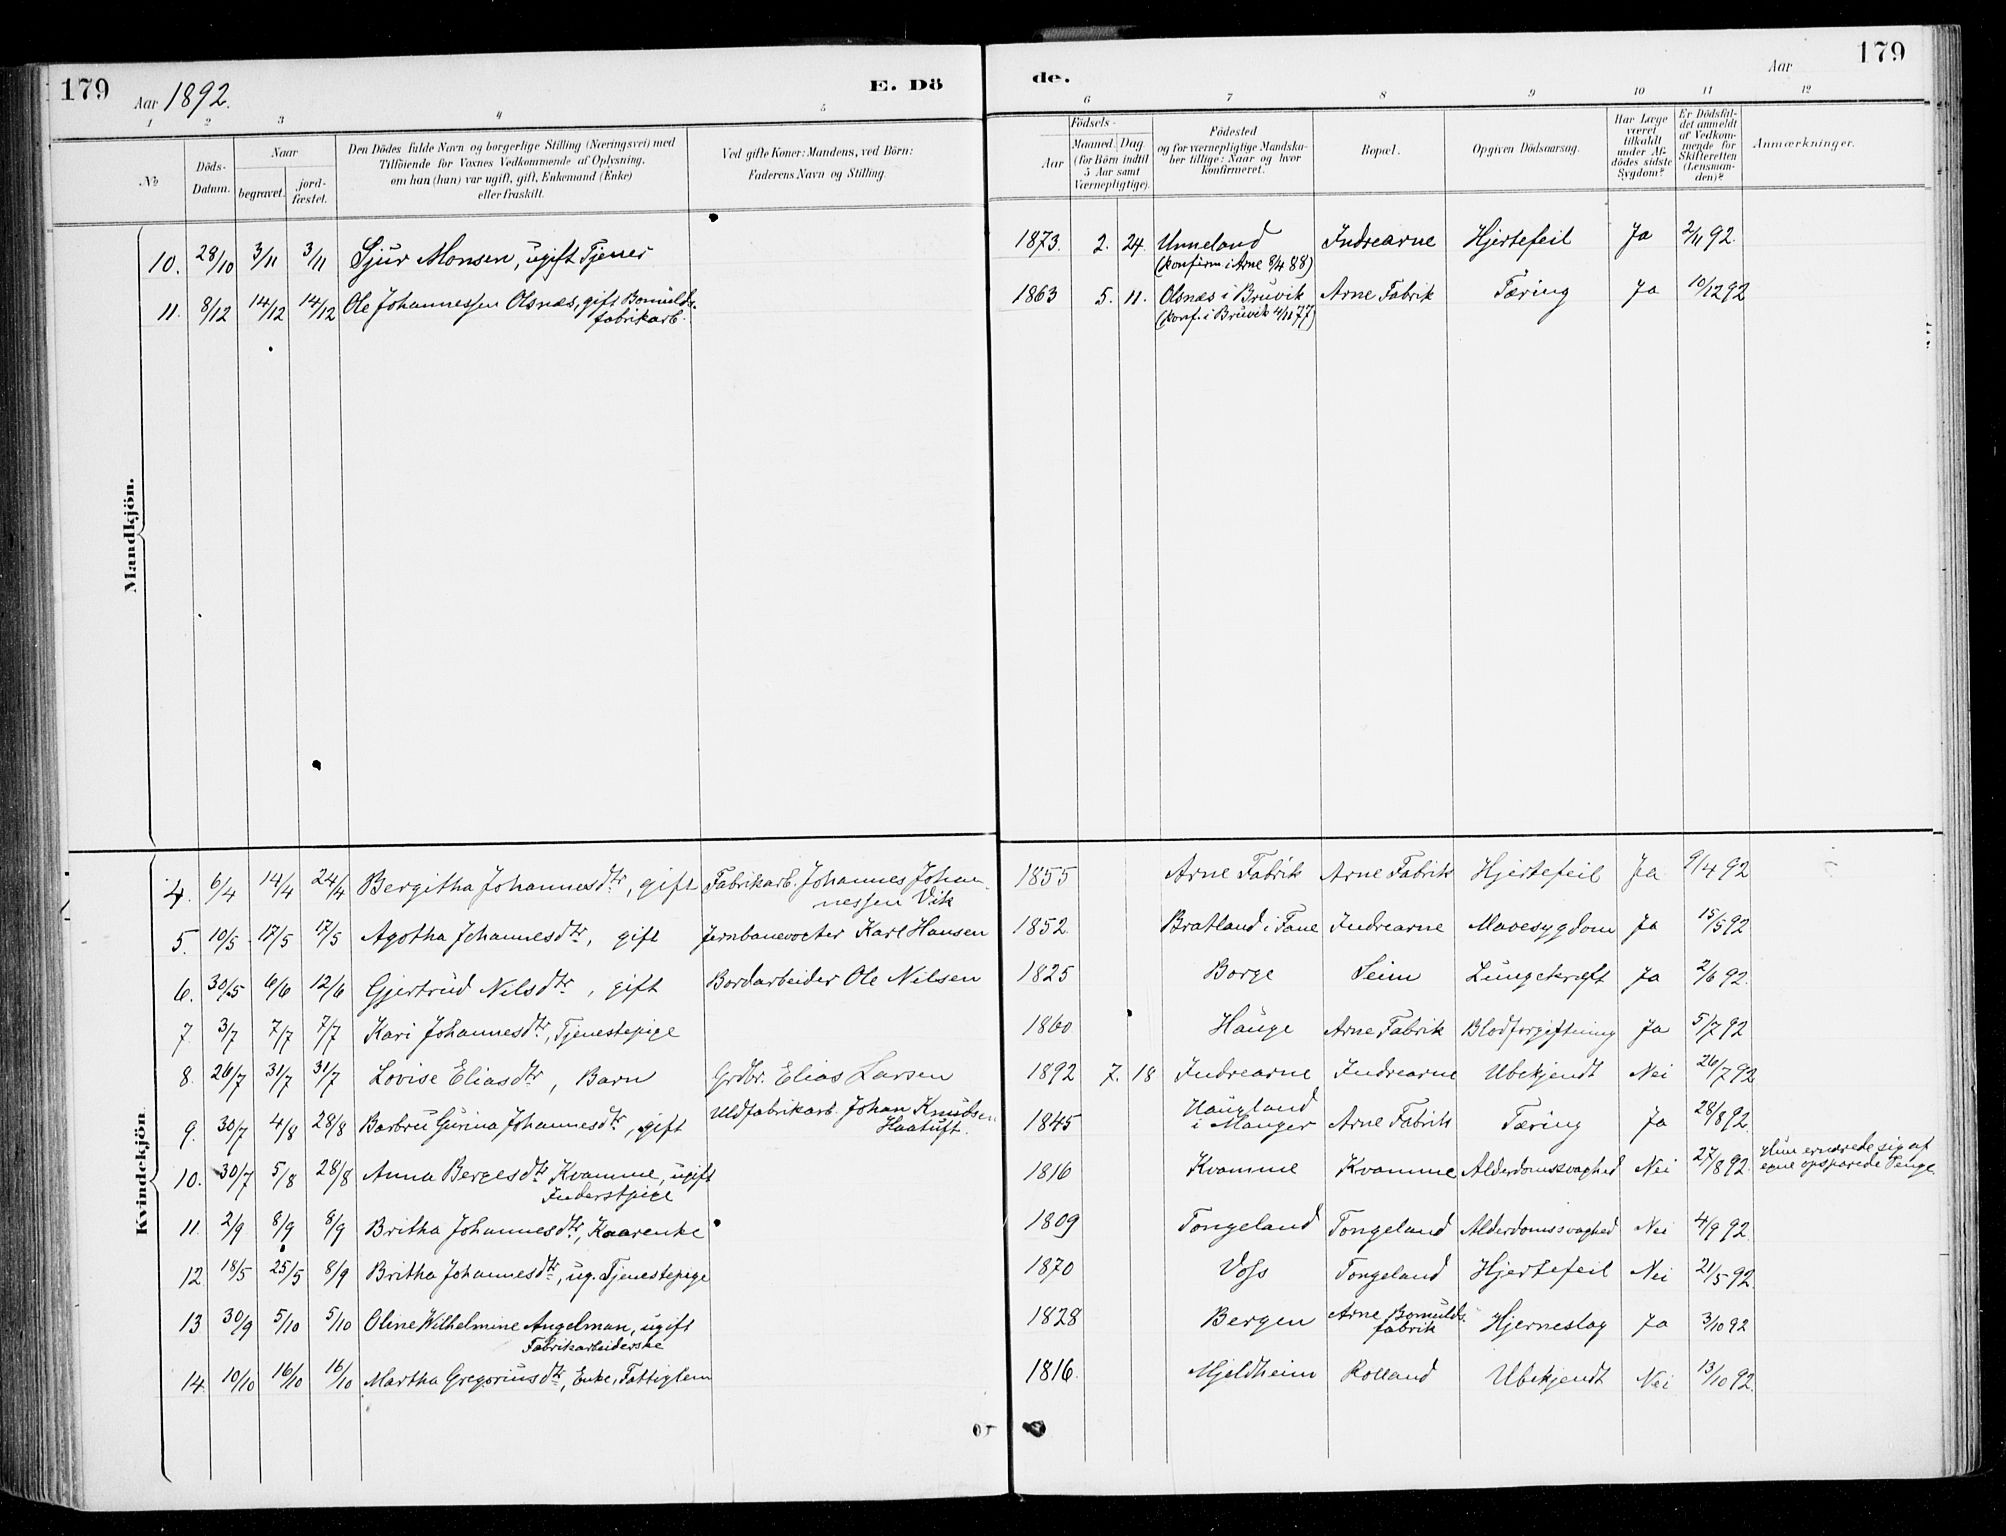 179 Aar 1892. E. Dö de. Aar 179
1 2 3 4 5 6 7 8 9 10 11 12
No
Döds-
Datum.
Naar
begravet.
jord-
fæstet.
Den Dödes fulde Navn og borgerlige Stilling (Næringsvei) med
Tilföiende for Voxnes Vedkommende af Oplysning,
om han (hun) var ugift, gift, Enkemand (Enke)
eller fraskilt.
Ved gifte Koner: Mandens, ved Börn:
Faderens Navn og Stilling.
Födsels-
Aar
Maaned Dag
(for Börn indtil
5 Aar samt
Værnepligtige).
Födested
og for værnepligtige Mandska-
ber tillige: Naar og hvor
konfirmeret.
Bopæl.
Opgiven Dödsaarsag.
Har Læge
været
tilkaldt
under Af-
dödes sidste
Sygdom?
Er Dödsfal-
det anmeldt
af Vedkom-
mende for
Skifteretten
(Lensman-
den)?
Anmærkninger.
Mandkjön.
10. 28/10 3/11 3/11 Sjur Monsen, ugift Tjener 1873. 2. 24. Unneland Indrearne Hjertefeil Ja 2/11 92.
(konfirm i Arne 8/4 88)
11. 8/12 14/12 14/12 Ole Johannessen Olsnæs, gift Bomulds- 1863 5. 11. Olsnæs i Bruvik Arne Fabrik Tæring Ja 10/12 92
fabrikarb. (konf. i Bruvik 4/11 77)
Kvindekjön.
4. 6/4 14/4 24/4 Bergitha Johannesdtr, gift Fabrikarb. Johannes Johan- 1855 Arne Fabrik Arne Fabrik Hjertefeil Ja 9/4 92
nessen Vik
5. 10/5 17/5 17/5 Agotha Johannesdtr, gift Jernbanevogter Karl Hansen 1852. Bratland i Fane Indrearne Mavesygdom Ja 15/5 92
6. 30/5 6/6 12/6 Gjertrud Nilsdtr, gift Bordarbeider Ole Nilsen 1825 Borge Seim Lungekræft Ja 2/6 92.
7. 3/7 7/7 7/7 Kari Johannesdtr, Tjenestepige 1860 Hauge Arne Fabrik Blodforgiftning Ja 5/7 92
8. 26/7 31/7 31/7 Lovise Eliasdtr, Barn Grdbr. Elias Larsen 1892 7. 18 Indrearne Indrearne Ubekjendt Nei 26/7 92
9. 30/7 4/8 28/8 Barbru Gurina Johannesdtr, gift Uldfabrikarb. Johan Knudsen 1845 Haugland Arne Fabrik Tæring Ja 28/8 92.
Haatuft. i Manger
10. 30/7 5/8 28/8 Anna Bergesdtr Kvamme, ugift 1816 Kvamme Kvamme Alderdomssvaghed Nei 27/8 92. Hun ernærede sig af
Inderstpige egne opsparede Penge.
11. 2/9 8/9 8/9 Britha Johannesdtr, Kaarenke 1809 Tongeland Tongeland Alderdomssvaghed Nei 4/9 92.
12 18/5 25/5 8/9 Britha Johannesdtr, ug. Tjenestepige 1870 Voss Tongeland Hjertefeil Nei 21/5 92.
13 30/9 5/10 5/10 Oline Wilhelmine Angelman, ugift 1828 Bergen Arne Bomulds- Hjerneslag Ja 3/10 92
Fabrikarbeiderske fabrik
14. 10/10 16/10 16/10 Martha Gregoriusdtr, Enke, Fattiglem 1816. Mjeldheim Rolland Ubekjendt Nei 13/10 92.